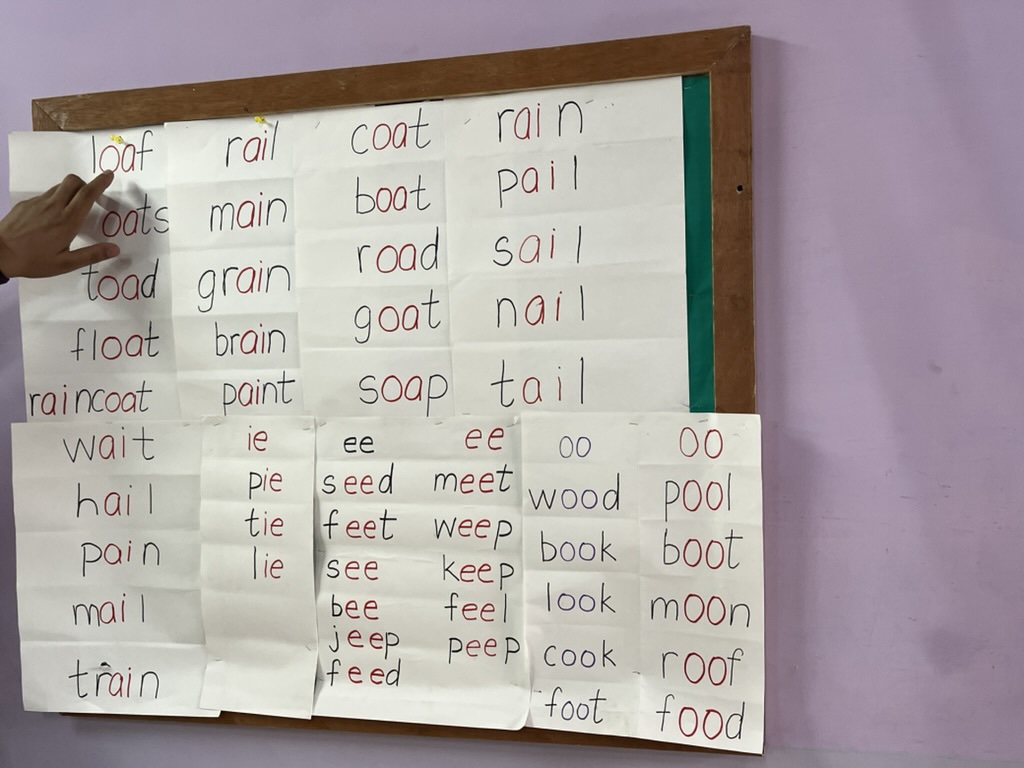 loaf rail coat rain
oats main boat pail
toad grain road sail
float brain goat nail
raincoat paint soap tail
wait
hail
pain
mail
train
ie
pie
tie
lie
ee ee
seed meet
feet weep
see keep
bee feel
jeep peep
feed
oo
wood
book
look
cook
foot
oo
pool
boot
moon
roof
food